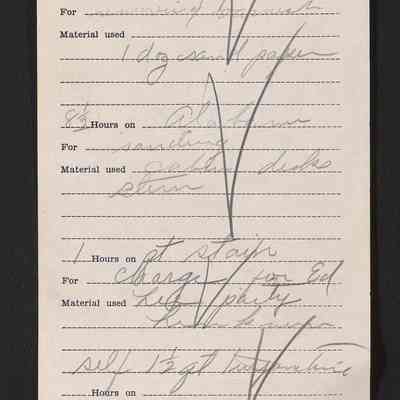 For removing
Material used
1 doz sand paper
8½ Hours on Alaburn
For sanding
Material used cabin desks
stern
1 Hours on pt stain
For charge for Ed
Material used party
self 1½ qt turpentine
Hours on